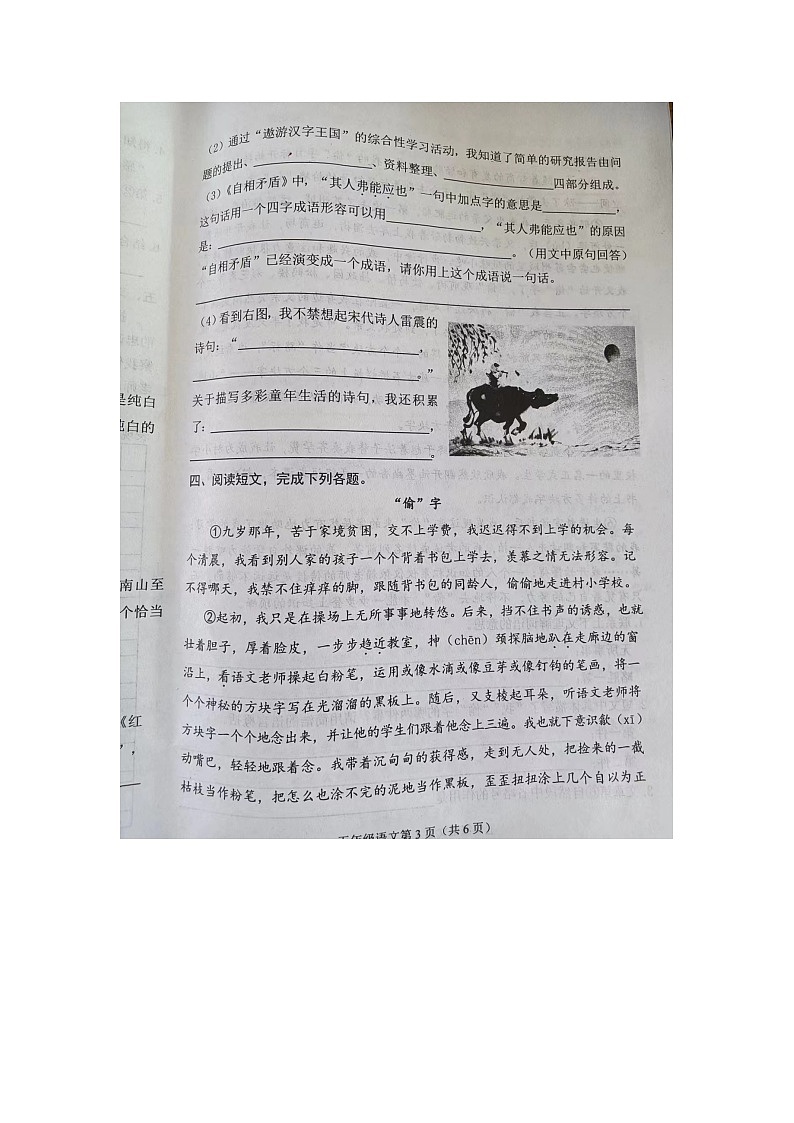 （2）通过“遨游汉字王国”的综合性学习活动，我知道了简单的研究报告由问
题的提出、、资料整理、四部分组成。
（3）《自相矛盾》中，“其人弗能应也”一句中加点字的意思是，
这句话用一个四字成语形容可以用，“其人弗能应也”的原因
是：。（用文中原句回答）
“自相矛盾”已经演变成一个成语，请你用上这个成语说一句话。
（4）看到右图，我不禁想起宋代诗人雷震的
诗句：“，
。”
关于描写多彩童年生活的诗句，我还积累
了：，
。
四、阅读短文，完成下列各题。
“偷”字
①九岁那年，苦于家境贫困，交不上学费，我迟迟得不到上学的机会。每
个清晨，我看到别人家的孩子一个个背着书包上学去，羡慕之情无法形容。记
不得哪天，我禁不住痒痒的脚，跟随背书包的同龄人，偷偷地走进村小学校。
②起初，我只是在操场上无所事事地转悠。后来，挡不住书声的诱惑，也就
壮着胆子，厚着脸皮，一步步趋近教室，抻（chēn）颈探脑地趴在走廊边的窗
沿上，看语文老师操起白粉笔，运用或像水滴或像豆芽或像钉钩的笔画，将一
个个神秘的方块字写在光溜溜的黑板上。随后，又支棱起耳朵，听语文老师将
方块字一个个地念出来，并让他的学生们跟着他念上三遍。我也就下意识歙（xī）
动嘴巴，轻轻地跟着念。我带着沉甸甸的获得感，走到无人处，把捡来的一截
枯枝当作粉笔，把怎么也涂不完的泥地当作黑板，歪歪扭扭涂上几个自以为正
五年级语文第3页（共6页）
是纯白
纯白的
南山至
个恰当
《红
”，